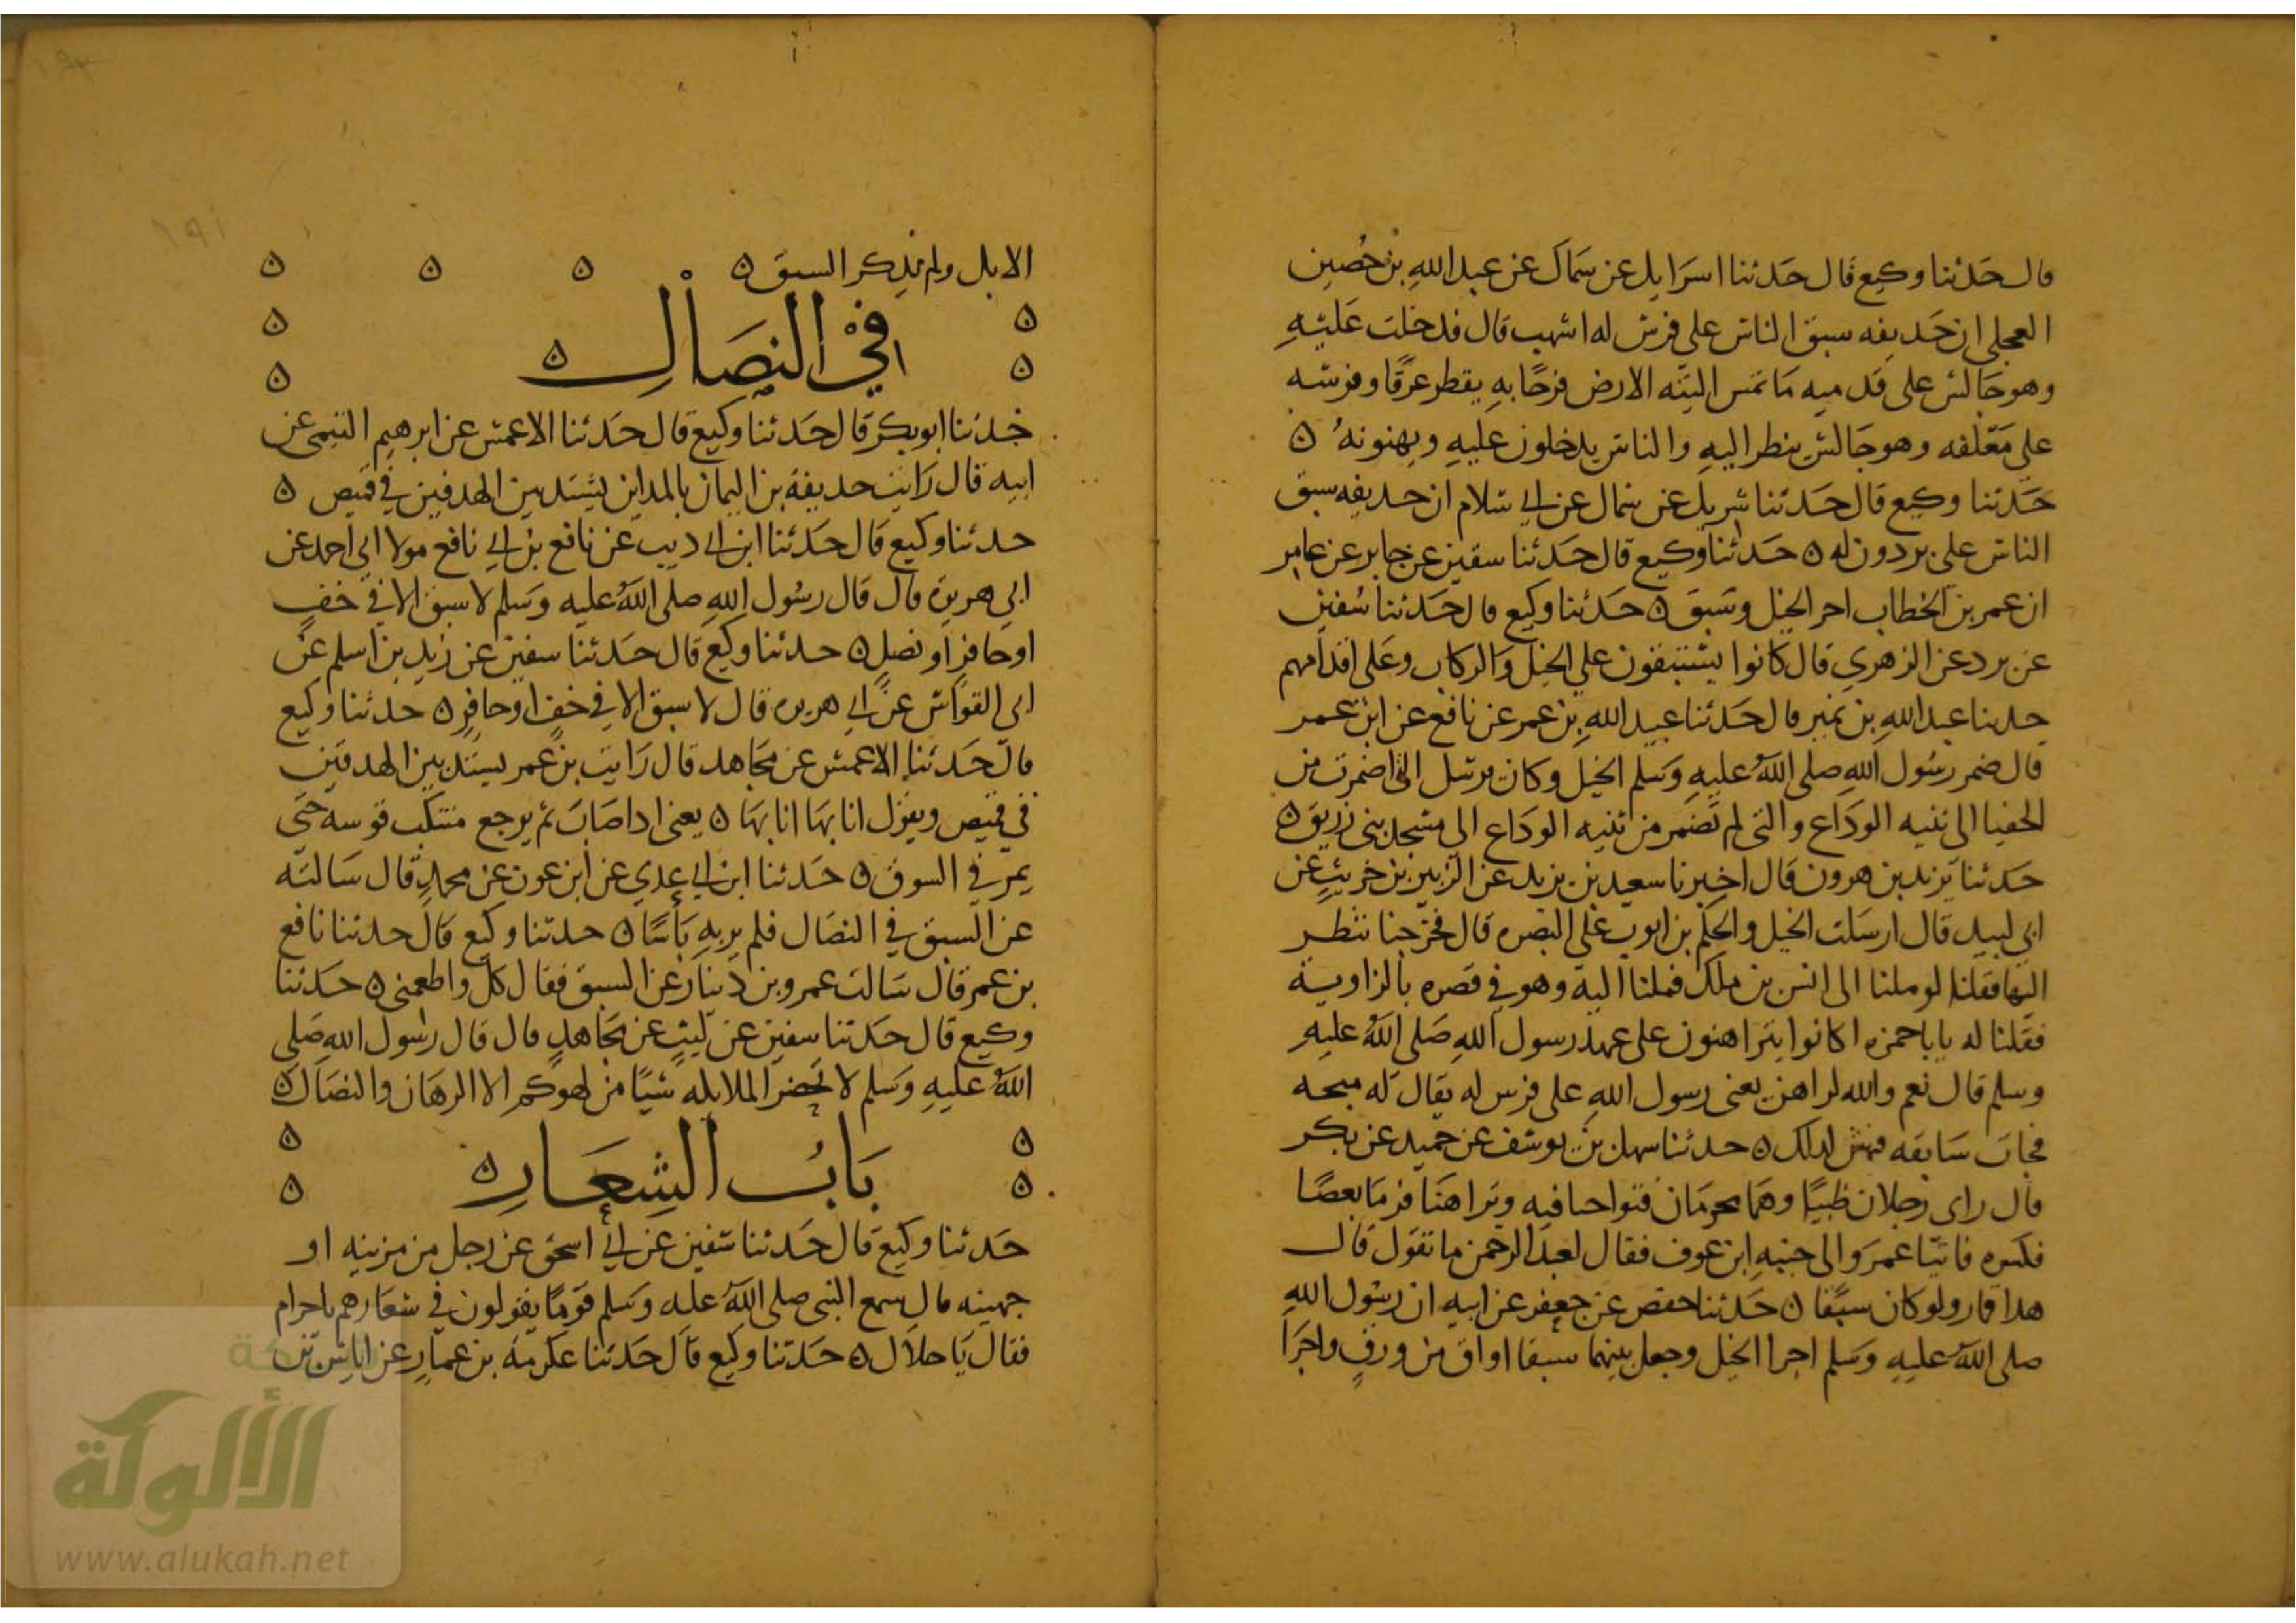 قال حَدثنا وكيع قال حَدثنا اسرَايل عن سمَاك عن عبد اللهِ بن حُصين
العجلي ان حَديفه سبق الناس على فرس له اشهب قال فدخلت عَليْهِ
وهو جَالس على قدميه مَا تمس اليته الارض فرحًا به يقطر عرقًا وفرسه
على مَعْلفه وهو جَالس ينظر اليهِ والناس يدخلون عليهِ ويهنونهُ ۞
حَدثنا وكيع قال حَدثنا شريك عن سمال عن ابي سَلام ان حديفه سبق
الناس على بردون له ۞ حَدثنا وكيع قال حَدثنا سفين عن جابر عن عامِر
ان عمر بن الخطاب اجر الخيل وسَبق ۞ حَدثنا وكيع قال حَدثنا سُفين
عن برد عن الزهري قال كانوا يستبقون على الخيل والركاب وعَلى اقدامهم
حدثنا عبد اللهِ بن نمير قال حَدثنا عبيد اللهِ بن عمر عن نافع عن ابن عمر
قال ضمر رسُول اللهِ صلى اللهُ عليهِ وَسَلم الخيل وكان يرسل التي اضمرت من
الحفيا الى ثنيه الودَاع والتي لم تضمر من ثنيه الودَاع الى مسجد بني زريق ۞
حَدثنا يَزيد بن هرون قال اخبرنا سعيد بن يزيد عن الزبير بن خريتٍ عن
ابي لبيد قال ارسَلت الخيل والحكم بن ايوب على البصره قال فخرجنا ننظر
اليها فقلنا لو ملنا الى انس بن ملك فملنا اليه وهو في قصره بالزاوية
فقلنا له يابا حمزه اكانوا يتراهنون على عهد رسول اللهِ صَلى اللهُ عليهِ
وسلم قال نعم والله لراهن يعني رسول اللهِ على فرس له يقال له سبحه
فجات سَابقه فهش لدلك ۞ حدثنا سهل بن يوسف عن حميد عن بكر
قال راى رجلان ظبيًا وهمَا محرمَان فتواحبا فيه وتراهنا فرمَا بعصًا
فكسره فاتيَا عمر والى جنبهِ ابن عوف فقال لعبد الرحمن ما تقول قال
هدا قمار ولو كان سبقا ۞ حَدثنا حفص عن جعفر عن ابيه ان رسُول اللهِ
صلى اللهُ عليهِ وسَلم اجرا الخيل وجعل بينهما سبقا اواق من ورقٍ واجرَا
الابل ولم يذكر السبق ۞ ۞ ۞ ۞
في النصَالِ ۞
حَدثنا ابو بكر قال حَدثنا وكيع قال حَدثنا الاعمش عن ابرهيم التيمي عن
ابيه قال رَايت حديفة بن اليمان بالمداين يشتد بين الهدفين في قميص ۞
حدثنا وكيع قال حَدثنا ابن ابي ديب عن نافع بن ابي نافع مولا ابي احمد عن
ابي هريره قال قال رسُول اللهِ صلى اللهُ عليه وَسَلم لا سبق الا في خفٍ
او حَافرٍ او نصلٍ ۞ حدثنا وكيع قال حَدثنا سفين عن زيد بن اسلم عن
ابي القواس عن ابي هريره قال لا سبق الا في خفٍ او حافرٍ ۞ حدثنا وكيع
قال حَدثنا الاعمش عن مجَاهد قال رَايت بن عمر يستد بين الهدفين
في قميص ويقول انا بهَا انا بهَا ۞ يعني ادا اصَابَ ثم يرجع متنكب قوسه حَتى
يمر في السوق ۞ حَدثنا ابن ابي عدي عن ابن عون عن محمدٍ قال سَالته
عن السبق في النصَال فلم يربهِ بَاسًا ۞ حدثنا وكيع قال حدثنا نافع
بن عمر قال سَالت عمرو بن دينار عن السبق فقال كل واطعمني ۞ حَدثنا
وكيع قال حَدثنا سفين عن ليثٍ عن مجَاهدٍ قال قال رسُول اللهِ صَلى
اللهُ عليهِ وَسَلم لا تحضر الملايكه شيًا من لهوكم الا الرهَان والنصَال ۞
بَابُ الشِعَار ۞
حَدثنا وكيع قال حَدثنا سَفين عن ابي اسحق عن رجل من مزينه او
جهينه قال سمع النبي صلى اللهُ عليه وَسَلم قومًا يقولون في شعَارهم ياحرام
فقال يَا حلَال ۞ حَدثنا وكيع قال حَدثنا عكرمَة بن عمارٍ عن اياس بن
الألوكة
www.alukah.net